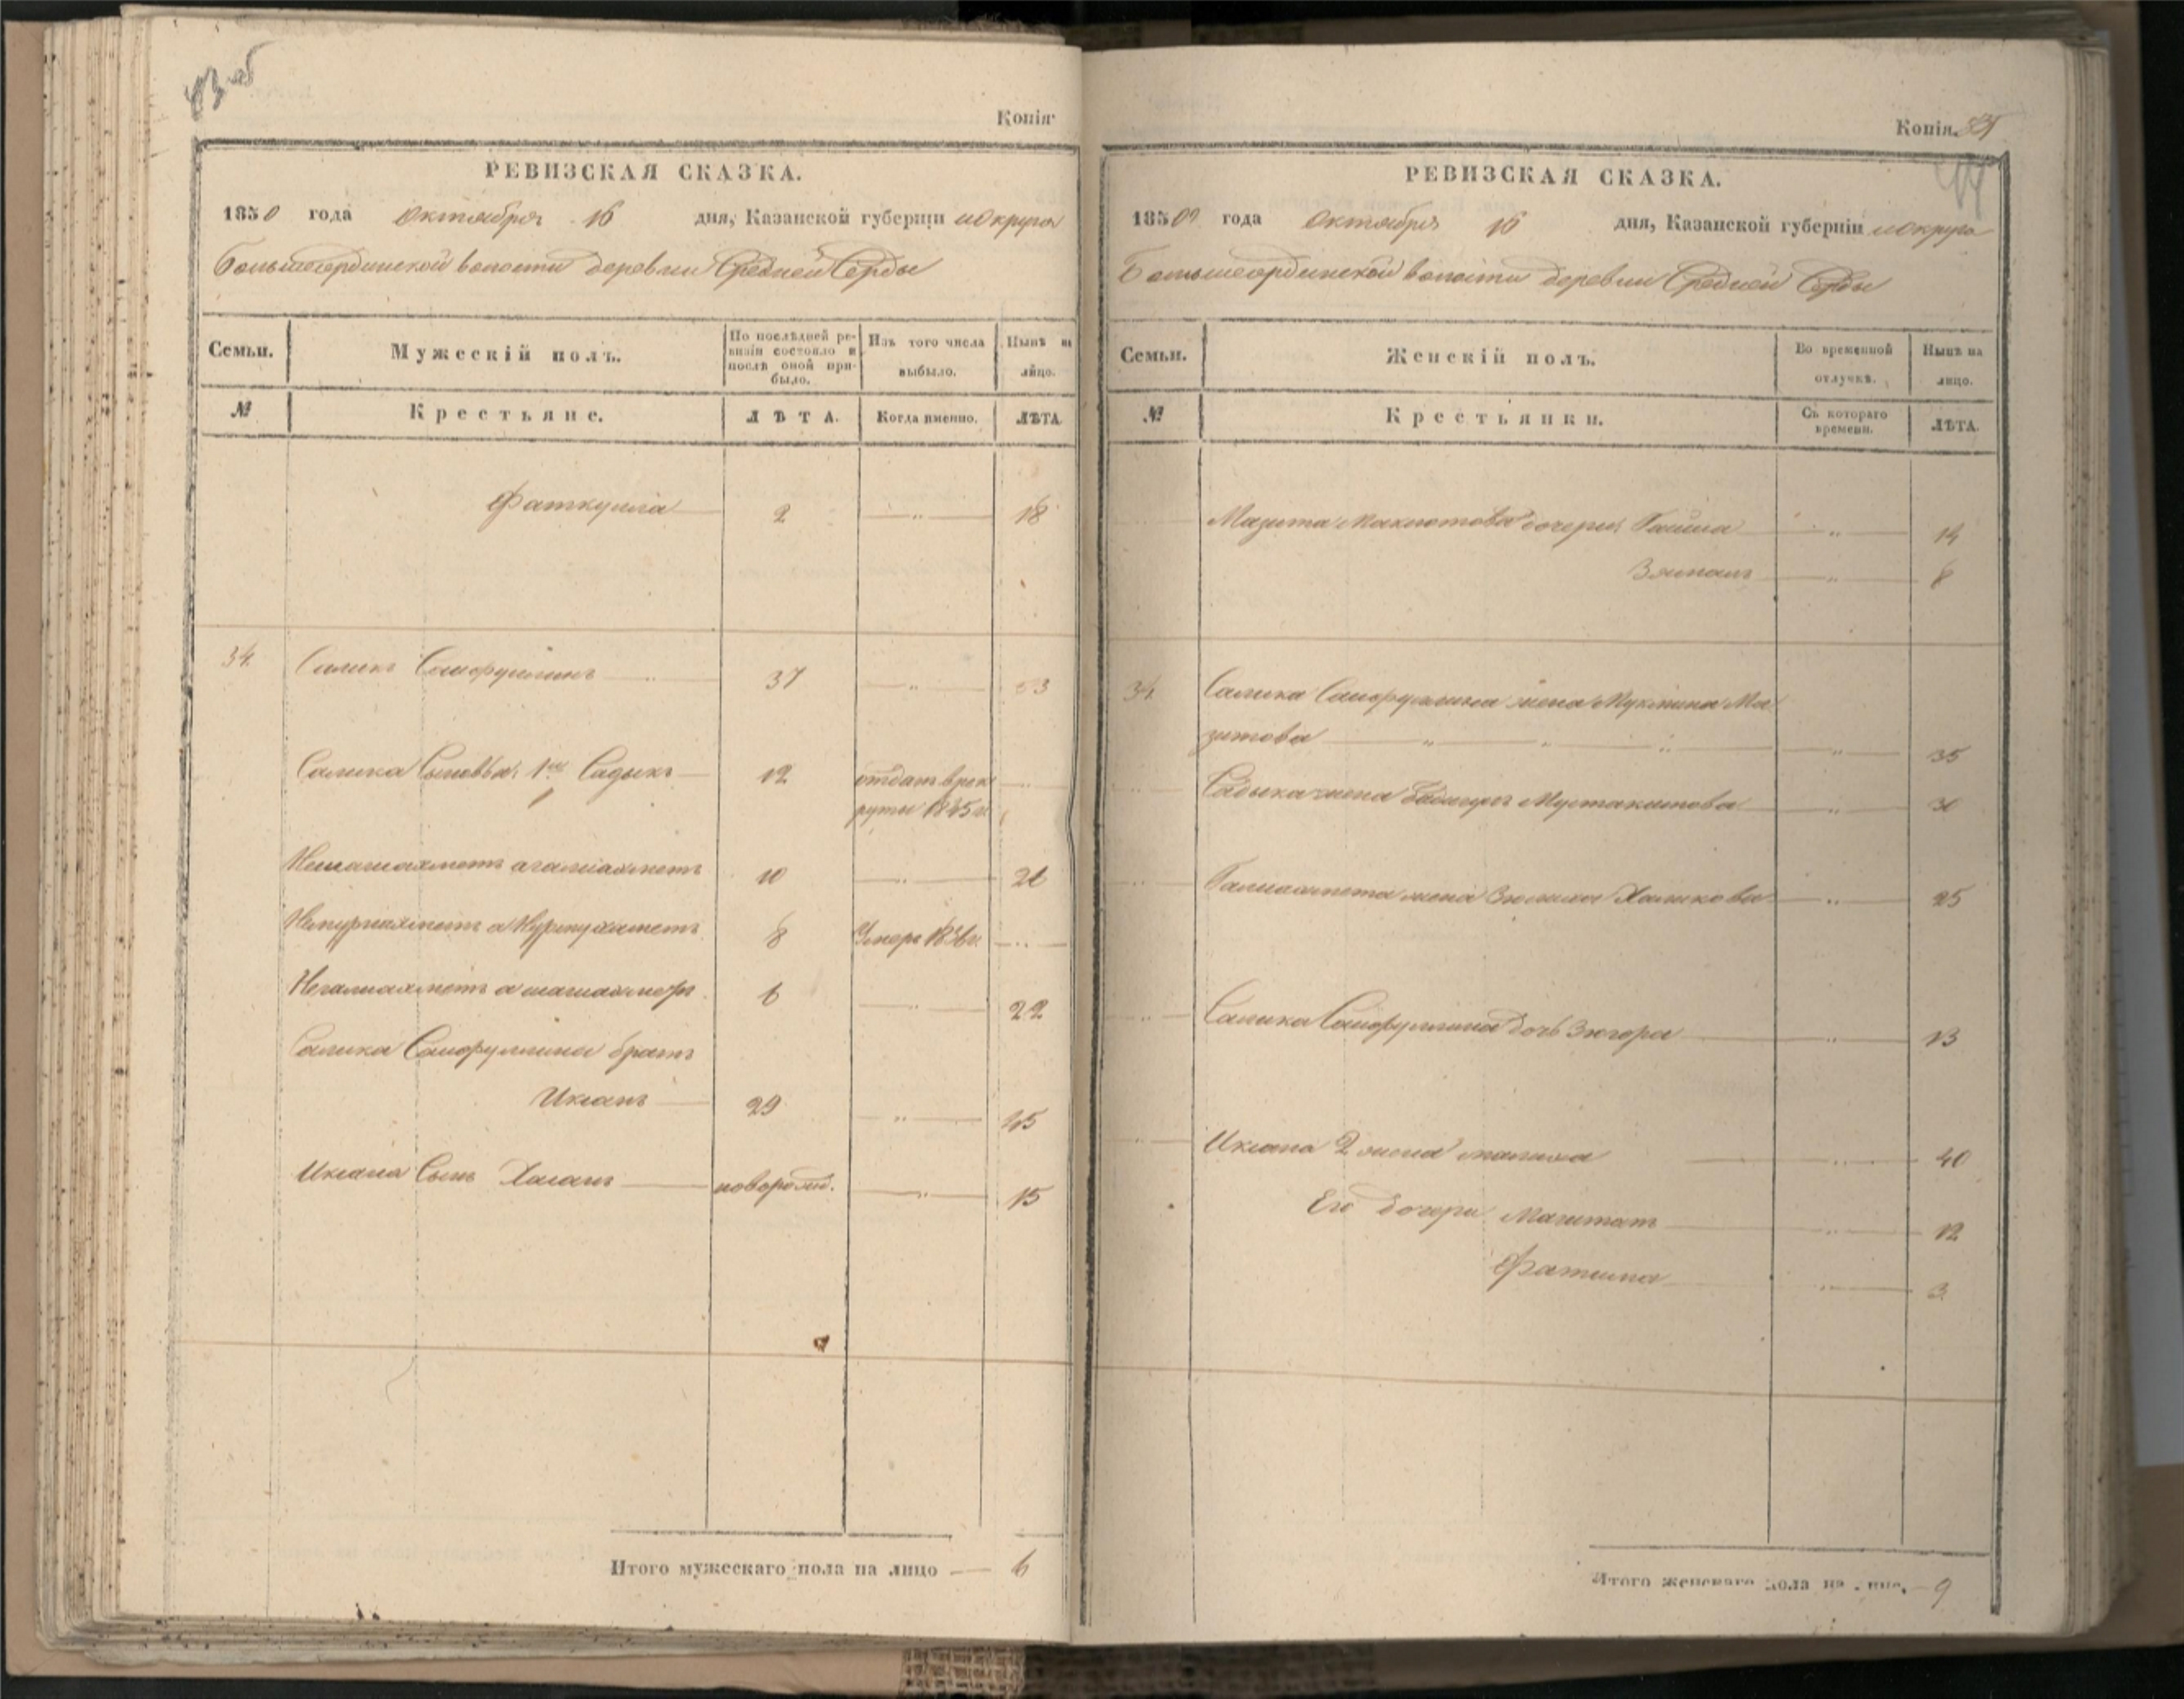 83 об
Копія
РЕВИЗСКАЯ СКАЗКА.
1850 года октября 16 дня, Казанской губерніи и округа
Большесердинской волости деревни Средней Серды
Семьи.
Мужескій полъ.
По послѣдней ревизіи состояло и послѣ оной прибыло.
Изъ того числа выбыло.
Нынѣ на лицо.
№
Крестьяне.
ЛѢТА.
Когда именно.
ЛѢТА.
Фаткулла 2 — „ — 18
34. Саликъ Сайфуллинъ 37 — „ — 53
Салика Сыновья, 1ый Садыкъ 12 отданъ в рек
руты 1845 г.
10 — „ — 26
8 Умеръ 1836 г.
6 — „ — 22
Салика Сайфуллина братъ
Иксанъ 29 — „ — 45
Иксана Сынъ Хасанъ новорожд. — „ — 15
Итого мужескаго пола на лицо — 6
Копія
РЕВИЗСКАЯ СКАЗКА.
1850 года октября 16 дня, Казанской губерніи и округа
Большесердинской волости деревни Средней Серды
Семьи.
Женскій полъ.
Во временной отлучкѣ.
Нынѣ на лицо.
№
Крестьянки.
Съ котораго времени.
ЛѢТА.
Мазита дочери, — „ — 14
— „ — 8
34. Салика Сайфуллина жена Ма
зитова — „ — 35
Садыка жена Мустакимова — „ — 30
Галиахмета жена Зюлиха Халикова — „ — 25
Салика Сайфуллина дочь Зюгора — „ — 13
Иксана 2 жена Малиха — „ — 40
Его дочери — „ — 12
Фатима — „ — 3
Итого женскаго пола на лицо, — 9